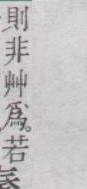 則非艸爲。若